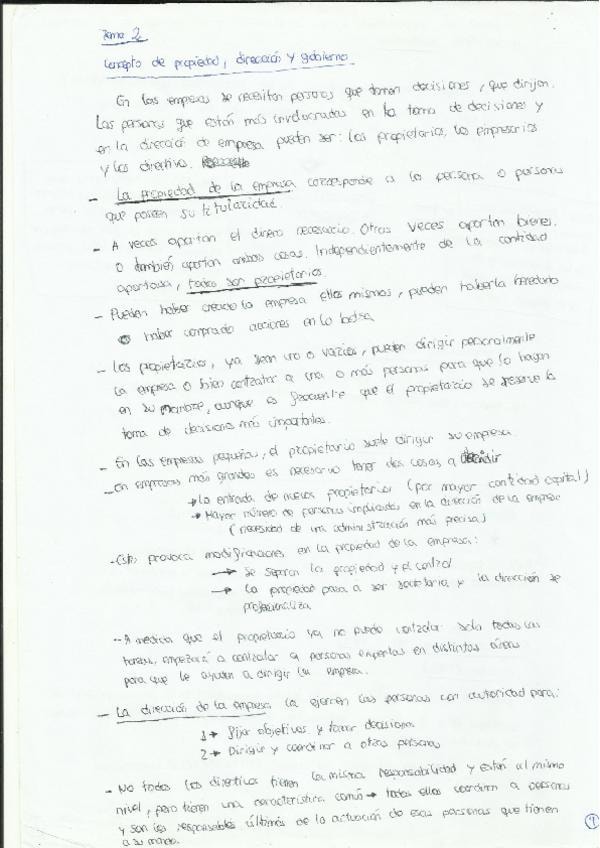 Tema 2
Concepto de propiedad, dirección y gobierno
En las empresas se necesitan personas que tomen decisiones, que dirijan.
Las personas que están más involucradas en la toma de decisiones y
en la dirección de empresa pueden ser: los propietarios, los empresarios
y los directivos.
- La propiedad de la empresa corresponde a la persona o personas
que poseen su titularidad.
- A veces aportan el dinero necesario. Otras veces aportan bienes.
o también aportan ambas cosas. Independientemente de la cantidad
aportada, todos son propietarios.
- Pueden haber creado la empresa ellos mismos, pueden haberla heredado
o haber comprado acciones en la bolsa
- Los propietarios, ya sean uno o varios, pueden dirigir personalmente
la empresa o bien contratar a una o más personas para que lo hagan
en su nombre, aunque es frecuente que el propietario se reserve la
toma de decisiones más importantes.
- En las empresas pequeñas, el propietario suele dirigir su empresa.
- en empresas más grandes es necesario tener dos cosas a decidir
→ La entrada de nuevos propietarios (por mayor cantidad capital)
→ Mayor número de personas implicadas en la dirección de la empresa
(necesidad de una administración más precisa)
- Esto provoca modificaciones en la propiedad de la empresa:
→ Se separan la propiedad y el control
→ La propiedad pasa a ser societaria y la dirección se
profesionaliza
- A medida que el propietario ya no puede controlar solo todas las
tareas, empezará a contratar a personas expertas en distintas áreas
para que le ayuden a dirigir la empresa.
- La dirección de la empresa la ejercen las personas con autoridad para:
1 → Fijar objetivos y tomar decisiones
2 → Dirigir y coordinar a otras personas
- No todos los directivos tienen la misma responsabilidad y están al mismo
nivel, pero tienen una característica común → todos ellos coordinan a personas
y son los responsables últimos de la actuación de esas personas que tienen
a su mando.
1